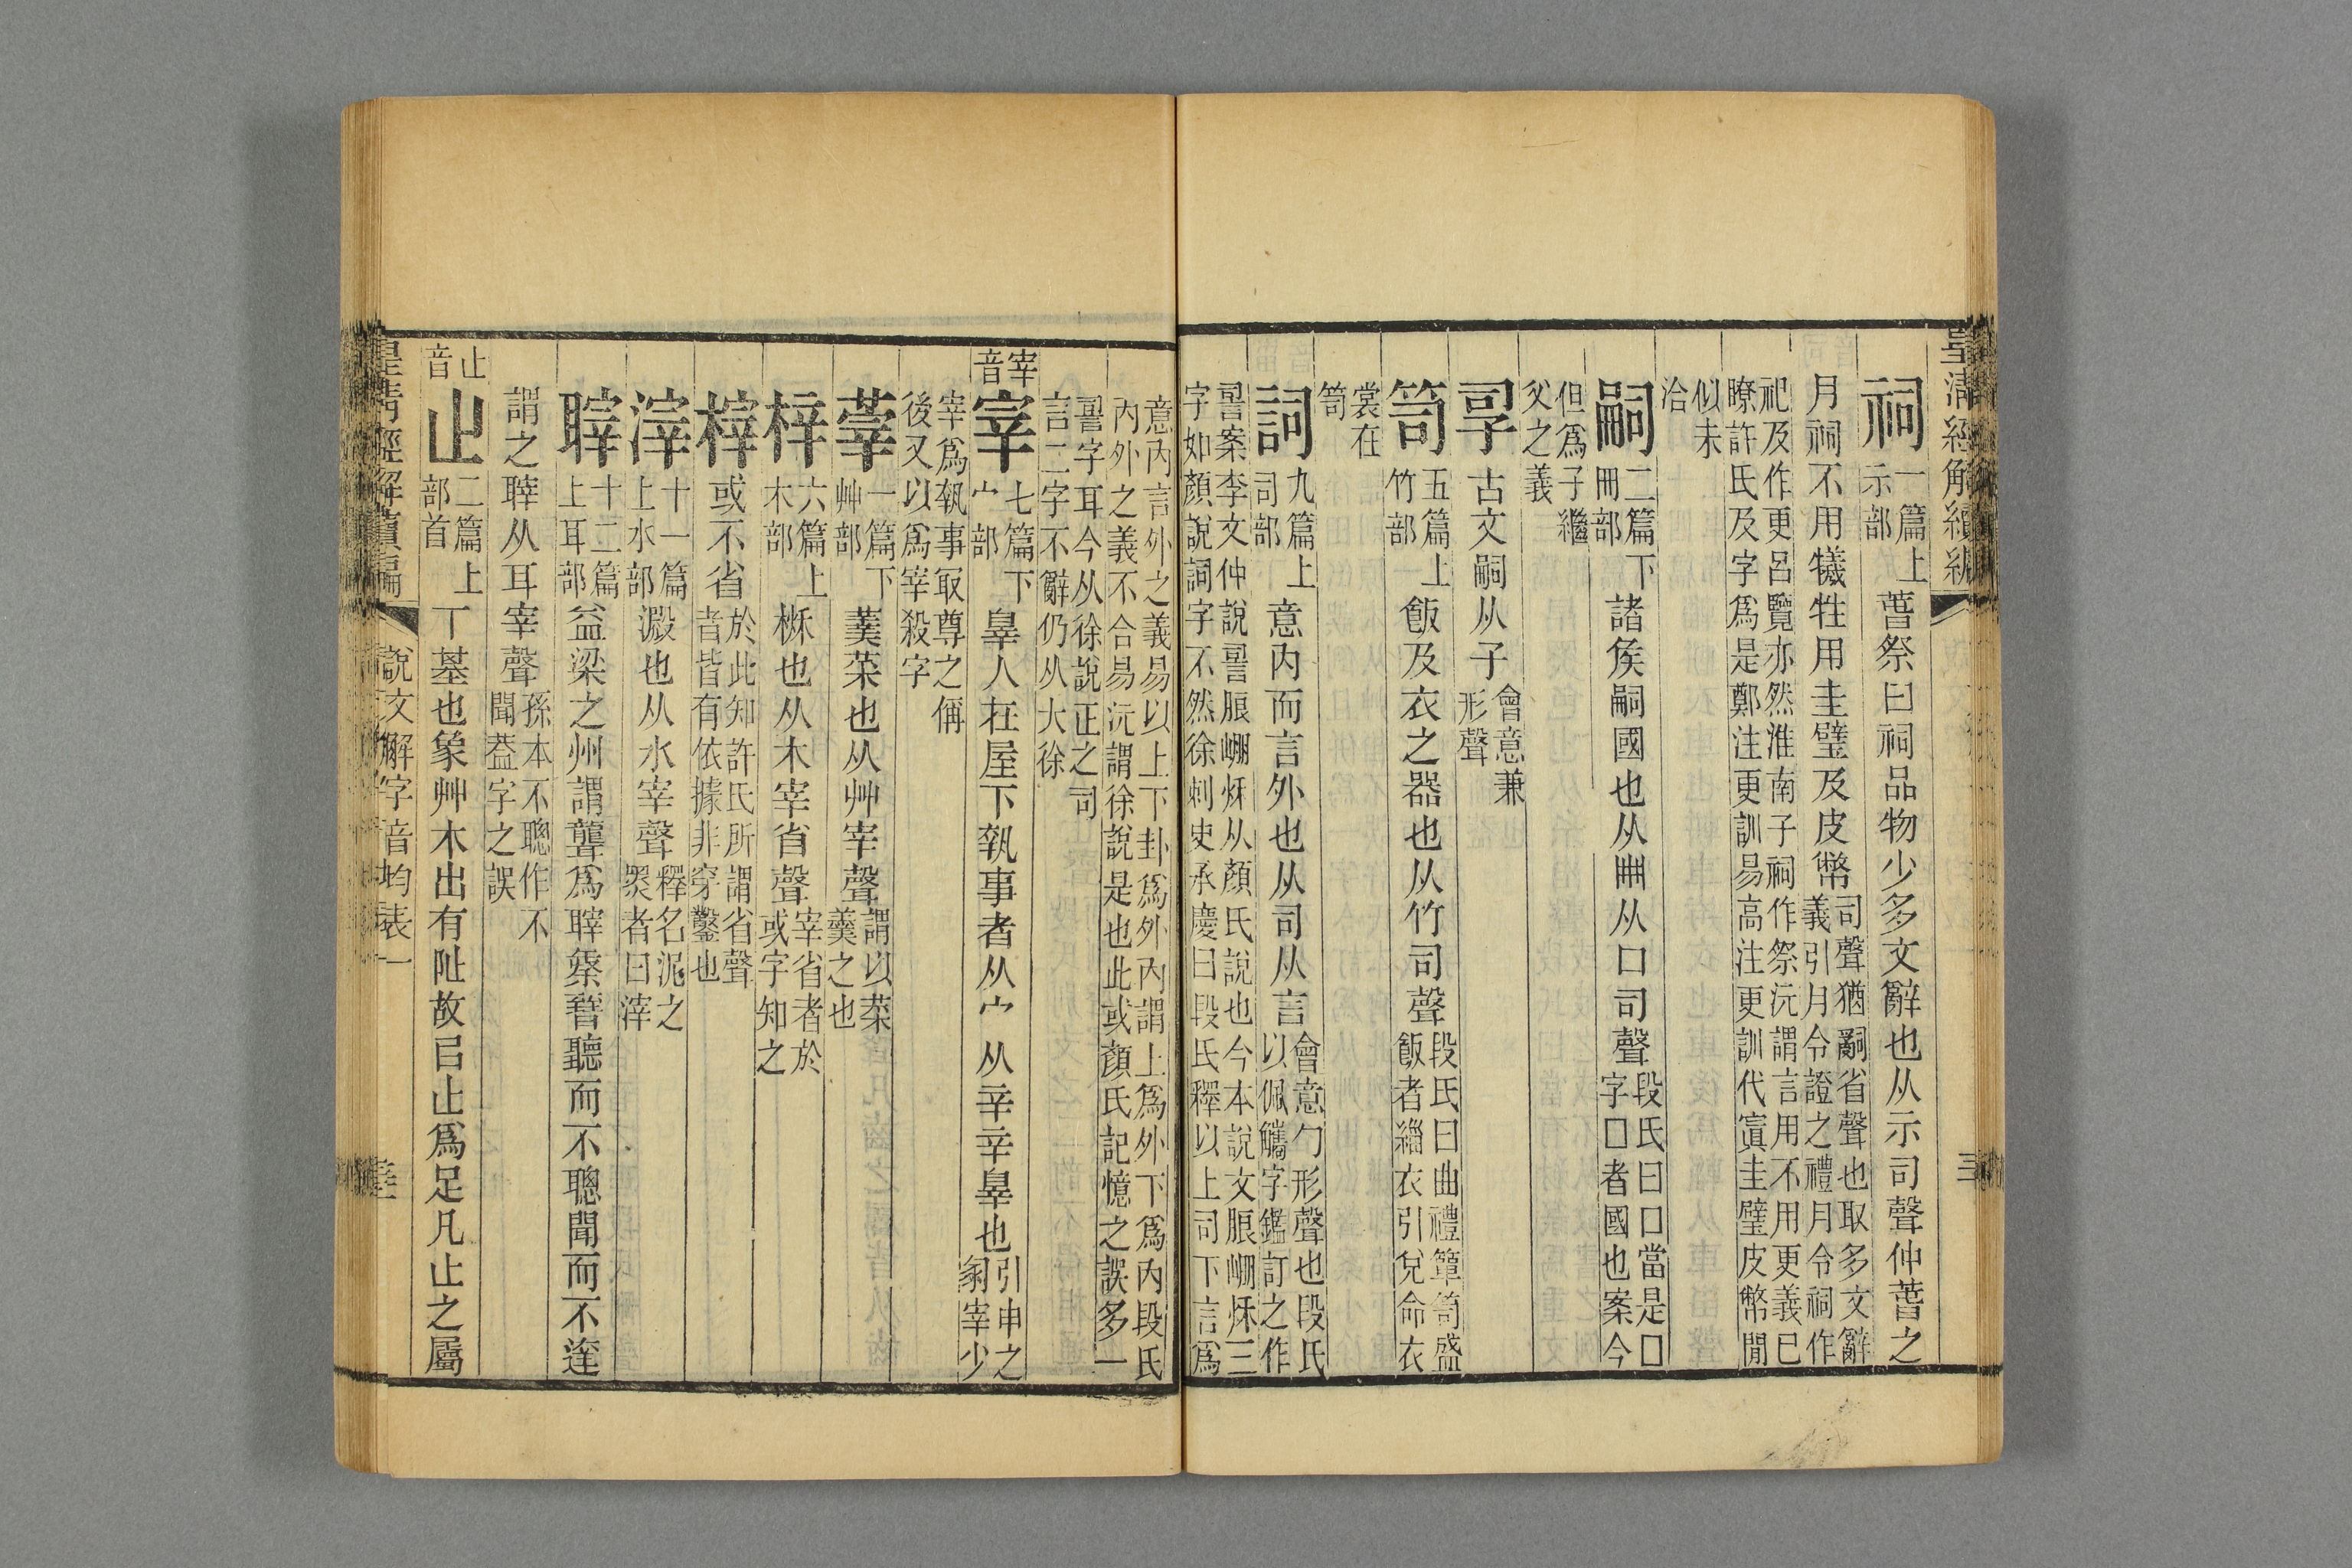 皇清經解續編
三
祠一篇上示部 萅祭曰祠品物少多文辭也从示司聲仲萅之
月祠不用犧牲用圭璧及皮幣司聲猶嗣省聲也取多文辭義引月令證之禮月令祠作
祀及作更呂覽亦然淮南子祠作祭沅謂言用不用更義巳瞭許氏及字爲是鄭注更訓易高注更訓代寘圭璧皮幣閒
似未洽
嗣二篇下冊部 諸矦嗣國也从冊从口司聲段氏曰口當是囗字囗者國也案今
但爲子繼父之義
孠古文嗣从子會意兼形聲
笥五篇上竹部 飯及衣之器也从竹司聲段氏曰曲禮簞笥盛飯者緇衣引兌命衣
裳在笥
詞九篇上司部 意內而言外也从司从言會意勹形聲也段氏以佩觿字鑑訂之作
𧥝案李文仲說𧥝脤𡶏𥘽从顏氏說也今本說文脤𡶏𥘽三字如顏說詞字不然徐刺史承慶曰段氏釋以上司下言爲
意內言外之義易以上下卦爲外內謂上爲外下爲內段氏內外之義不合易沅謂徐說是也此或顏氏記憶之誤多一
𧥝字耳今从徐說正之司言二字不辭仍从大徐
宰音
宰七篇下宀部 辠人在屋下執事者从宀从辛辛辠也引申之冢宰少
宰爲執事冣尊之偁後又以爲宰殺字
䔂一篇下艸部 羹菜也从艸宰聲謂以菜羹之也
梓六篇上木部 楸也从木宰省聲宰省者於或字知之
榟或不省於此知許氏所謂省聲者皆有依據非穿鑿也
滓十一篇上水部 澱也从水宰聲釋名泥之黑者曰滓
聹十二篇上耳部 益梁之州謂聾爲䏁秦晉聽而不聰聞而不達
謂之䏁从耳宰聲孫本不聰作不聞葢字之誤
止音
止二篇上部首 丅基也象艸木出有阯故㠯止爲足凡止之屬
皇清經解續編
說文解字音均表一